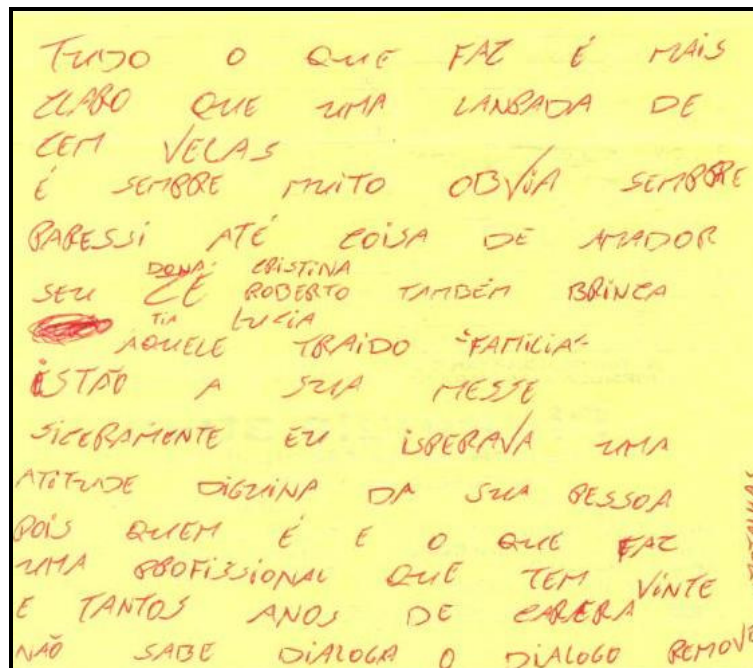 TUDO O QUE FAZ É MAIS
CLARO QUE UMA LANPADA DE
CEM VELAS
É SEMPRE MUITO OBVIA SEMPRE
PARESSI ATÉ COISA DE AMADOR
DONA CRISTINA
SEU ZÉ ROBERTO TAMBÉM BRINCA
TIA LUCIA
AQUELE TRAIDO "FAMILIA"
ISTÃO A SUA MESSE
SICERAMENTE EU ISPERAVA UMA
ATITUDE DIGUINA DA SUA PESSOA
POIS QUEM É E O QUE FAZ
UMA PROFISSIONAL QUE TEM VINTE
E TANTOS ANOS DE CARERA
NÃO SABE DIALOGA O DIALOGO REMOVE